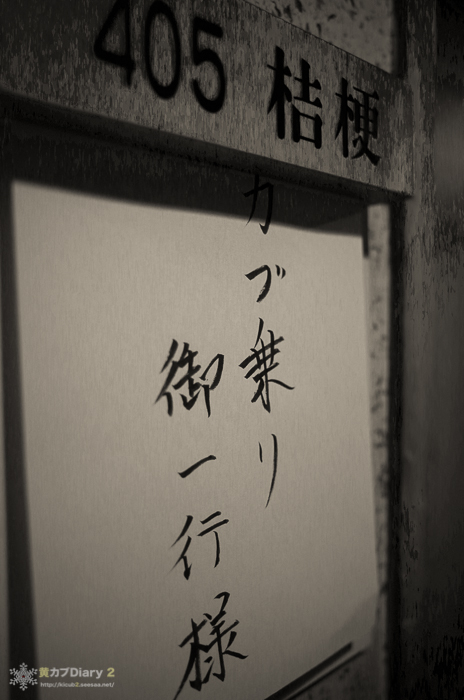 405 桔梗
カブ乗り
御一行様
黄カブDiary 2
http://kicub2.seesaa.net/